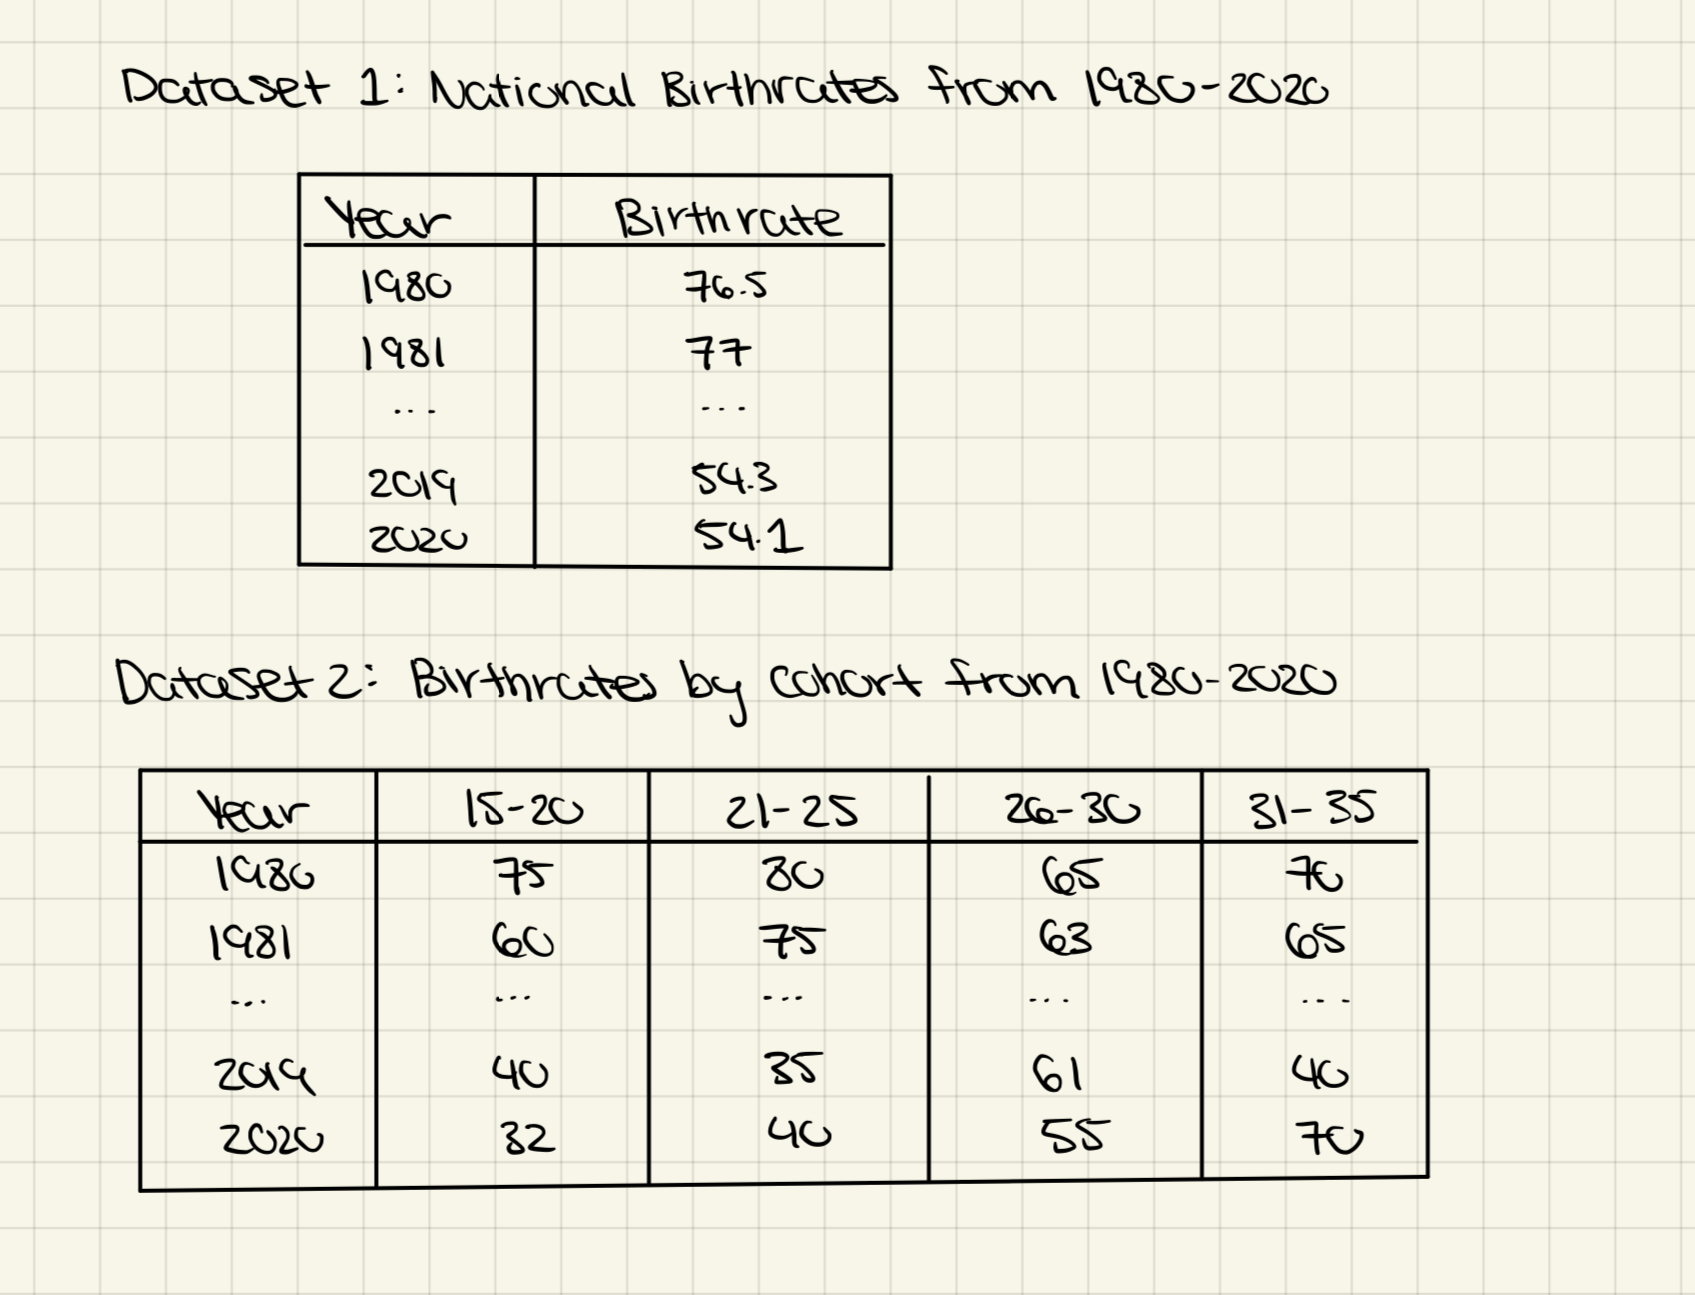 Dataset 1: National Birthrates from 1980-2020
Year Birthrate
1980 76.5
1981 77
... ...
2019 54.3
2020 54.1
Dataset 2: Birthrates by cohort from 1980-2020
Year 15-20 21-25 26-30 31-35
1980 75 80 65 70
1981 60 75 63 65
... ... ... ... ...
2019 40 35 61 40
2020 32 40 55 70